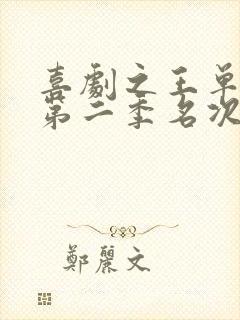 喜劇之王单
第二季名次
鄭麗文